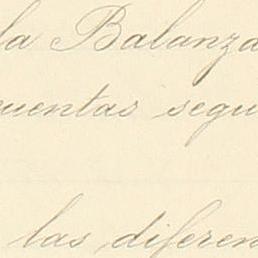 la Balanza
cuentas segu
las diferen